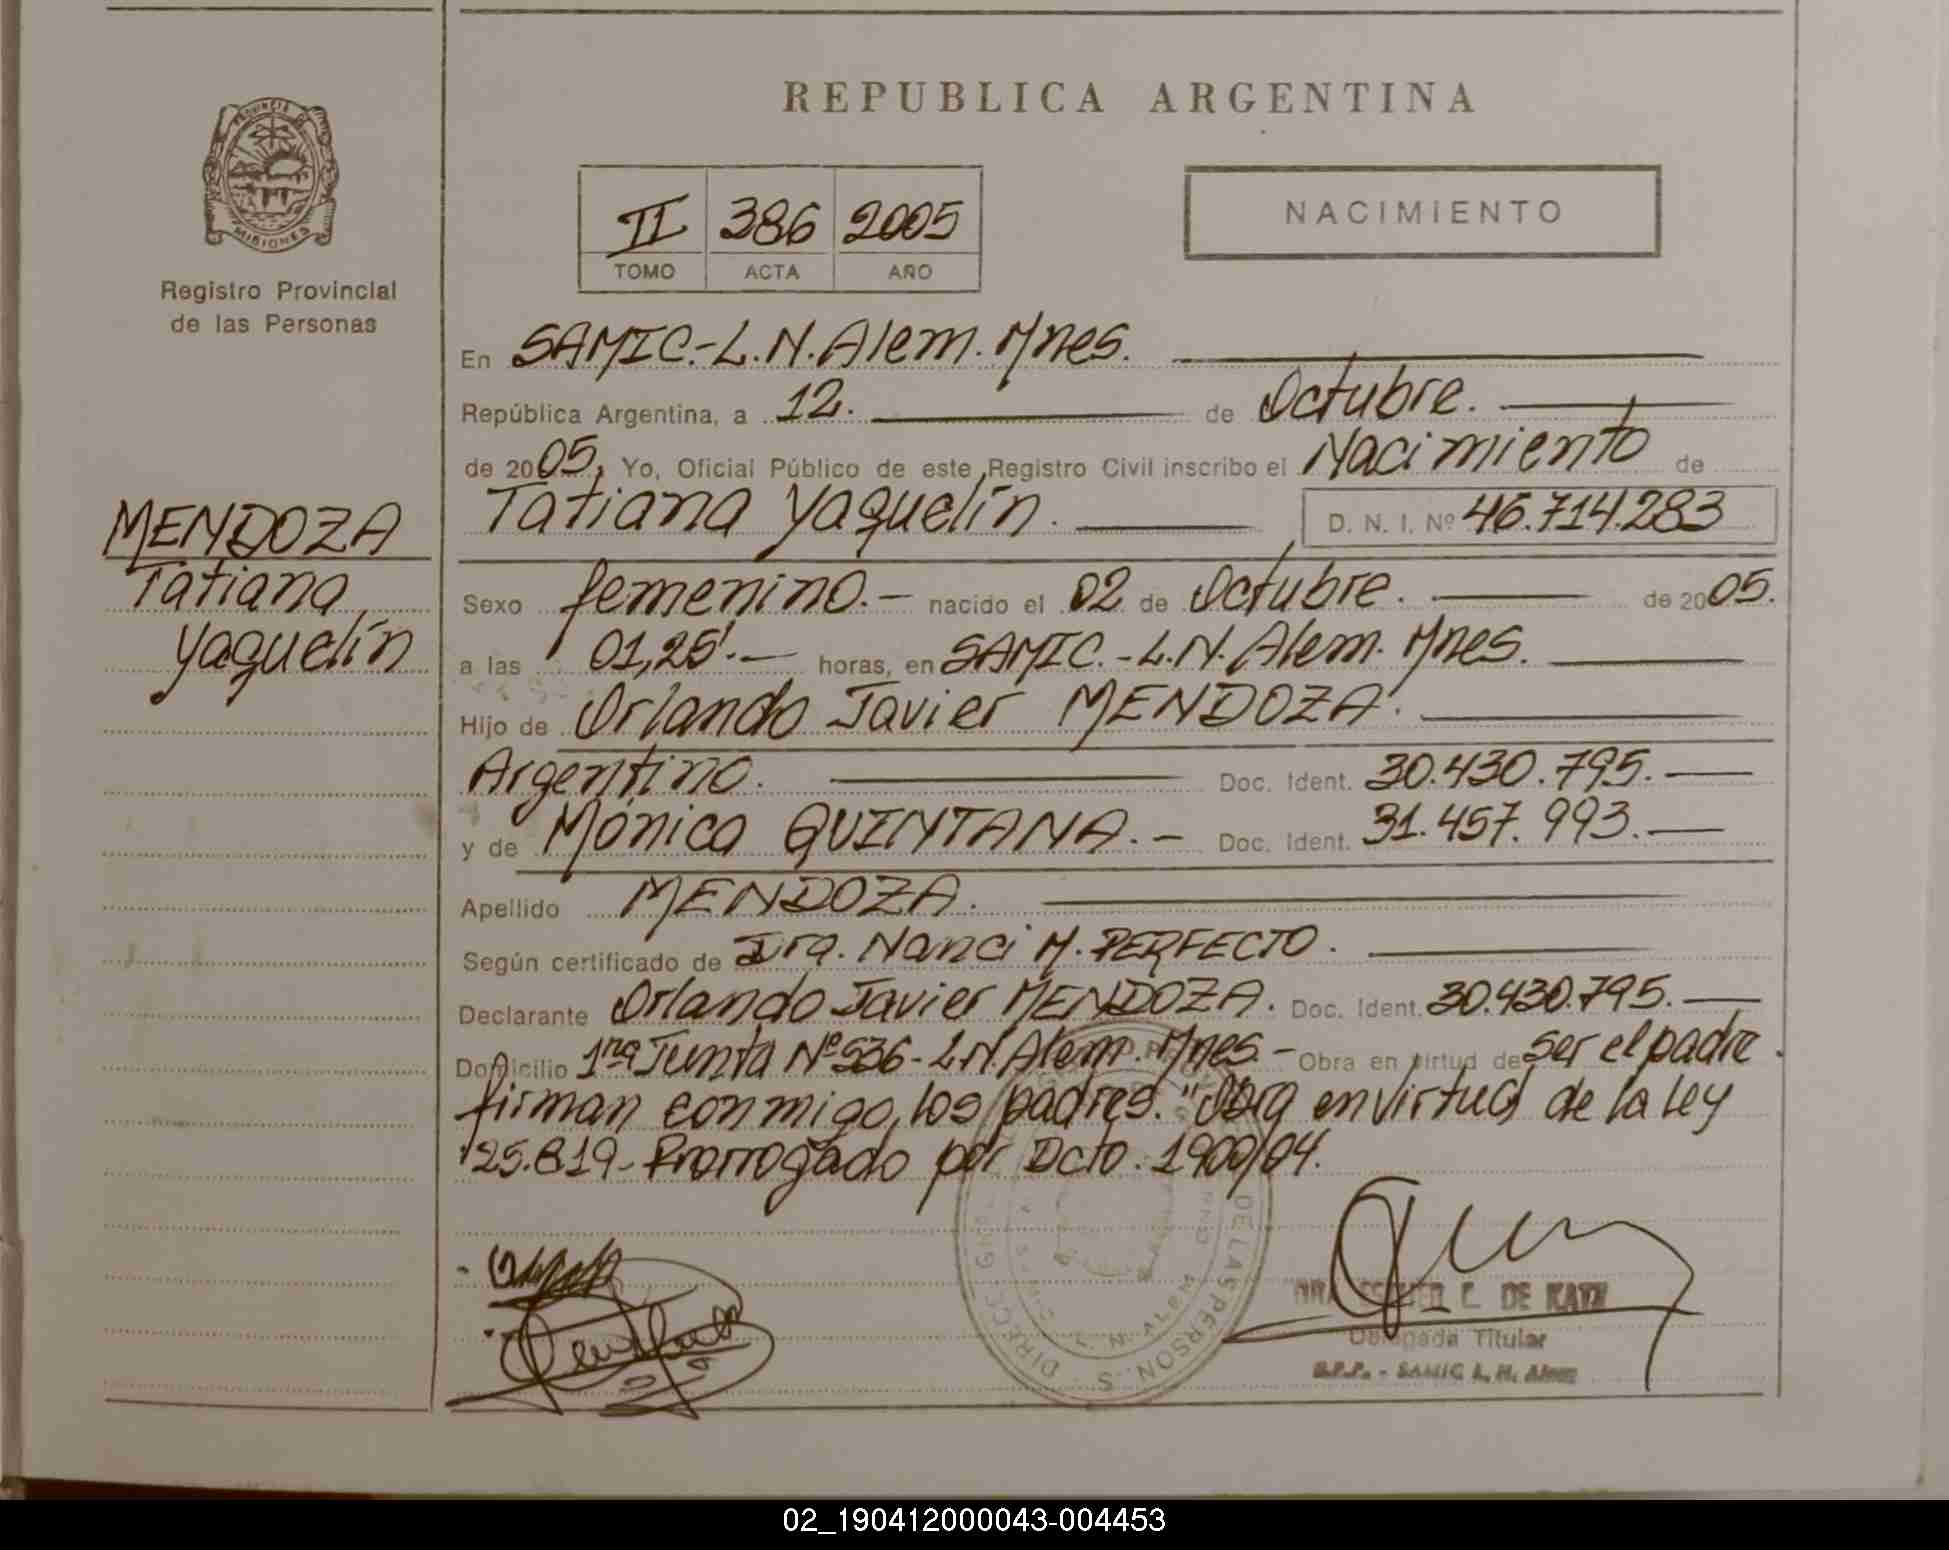 REPUBLICA ARGENTINA
PROVINCIA DE
MISIONES
Registro Provincial
de las Personas
II 386 2005
TOMO ACTA AÑO
NACIMIENTO
En SAMIC.-L.N.Alem. Mnes.
República Argentina, a 12. de Octubre.
de 2005, Yo, Oficial Público de este Registro Civil inscribo el Nacimiento de
Tatiana Yaquelín. D. N. I. Nº 46.714.283
MENDOZA
Tatiana
Yaquelín
Sexo femenino.- nacido el 02 de Octubre. de 2005.
a las 01,25'.- horas, en SAMIC.-L.N. Alem. Mnes.
Hijo de Orlando Javier MENDOZA.
Argentino. Doc. Ident. 30.430.795.
y de Mónica QUINTANA.- Doc. Ident. 31.457.993.
Apellido MENDOZA.
Según certificado de Dra. Nanci M. PERFECTO.
Declarante Orlando Javier MENDOZA. Doc. Ident. 30.430.795.
Domicilio 1ra Junta Nº 536-L.N. Alem. Mnes.- Obra en virtud de ser el padre.
firman conmigo, los padres. "Obra en virtud de la Ley
25.819- Prorrogado por Dcto. 1900/04.
DE KATZ
Delegada Titular
R.P.P. - SAMIC L. N. Alem
DE LAS PERSONAS
L. N. ALEM
02_190412000043-004453